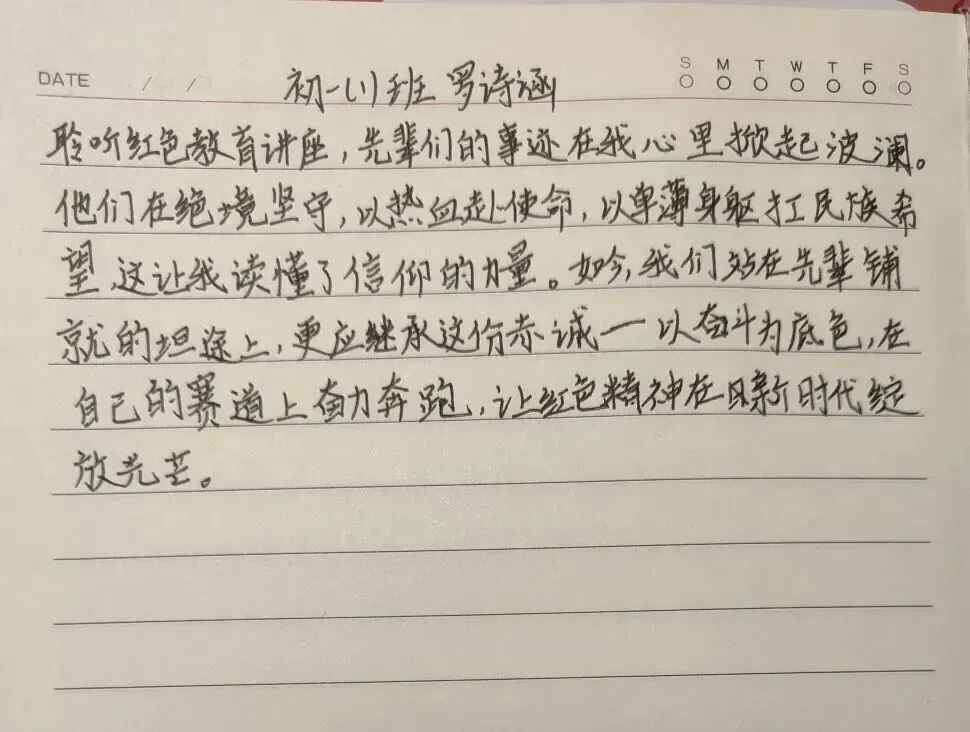 DATE / / 初一(1)班 罗诗涵 S M T W T F S
聆听红色教育讲座,先辈们的事迹在我心里掀起波澜。
他们在绝境坚守,以热血赴使命,以单薄身躯扛民族希
望,这让我读懂了信仰的力量。如今,我们站在先辈铺
就的坦途上,更应继承这份赤诚一以奋斗为底色,在
自己的赛道上奋力奔跑,让红色精神在新时代绽
放光芒。